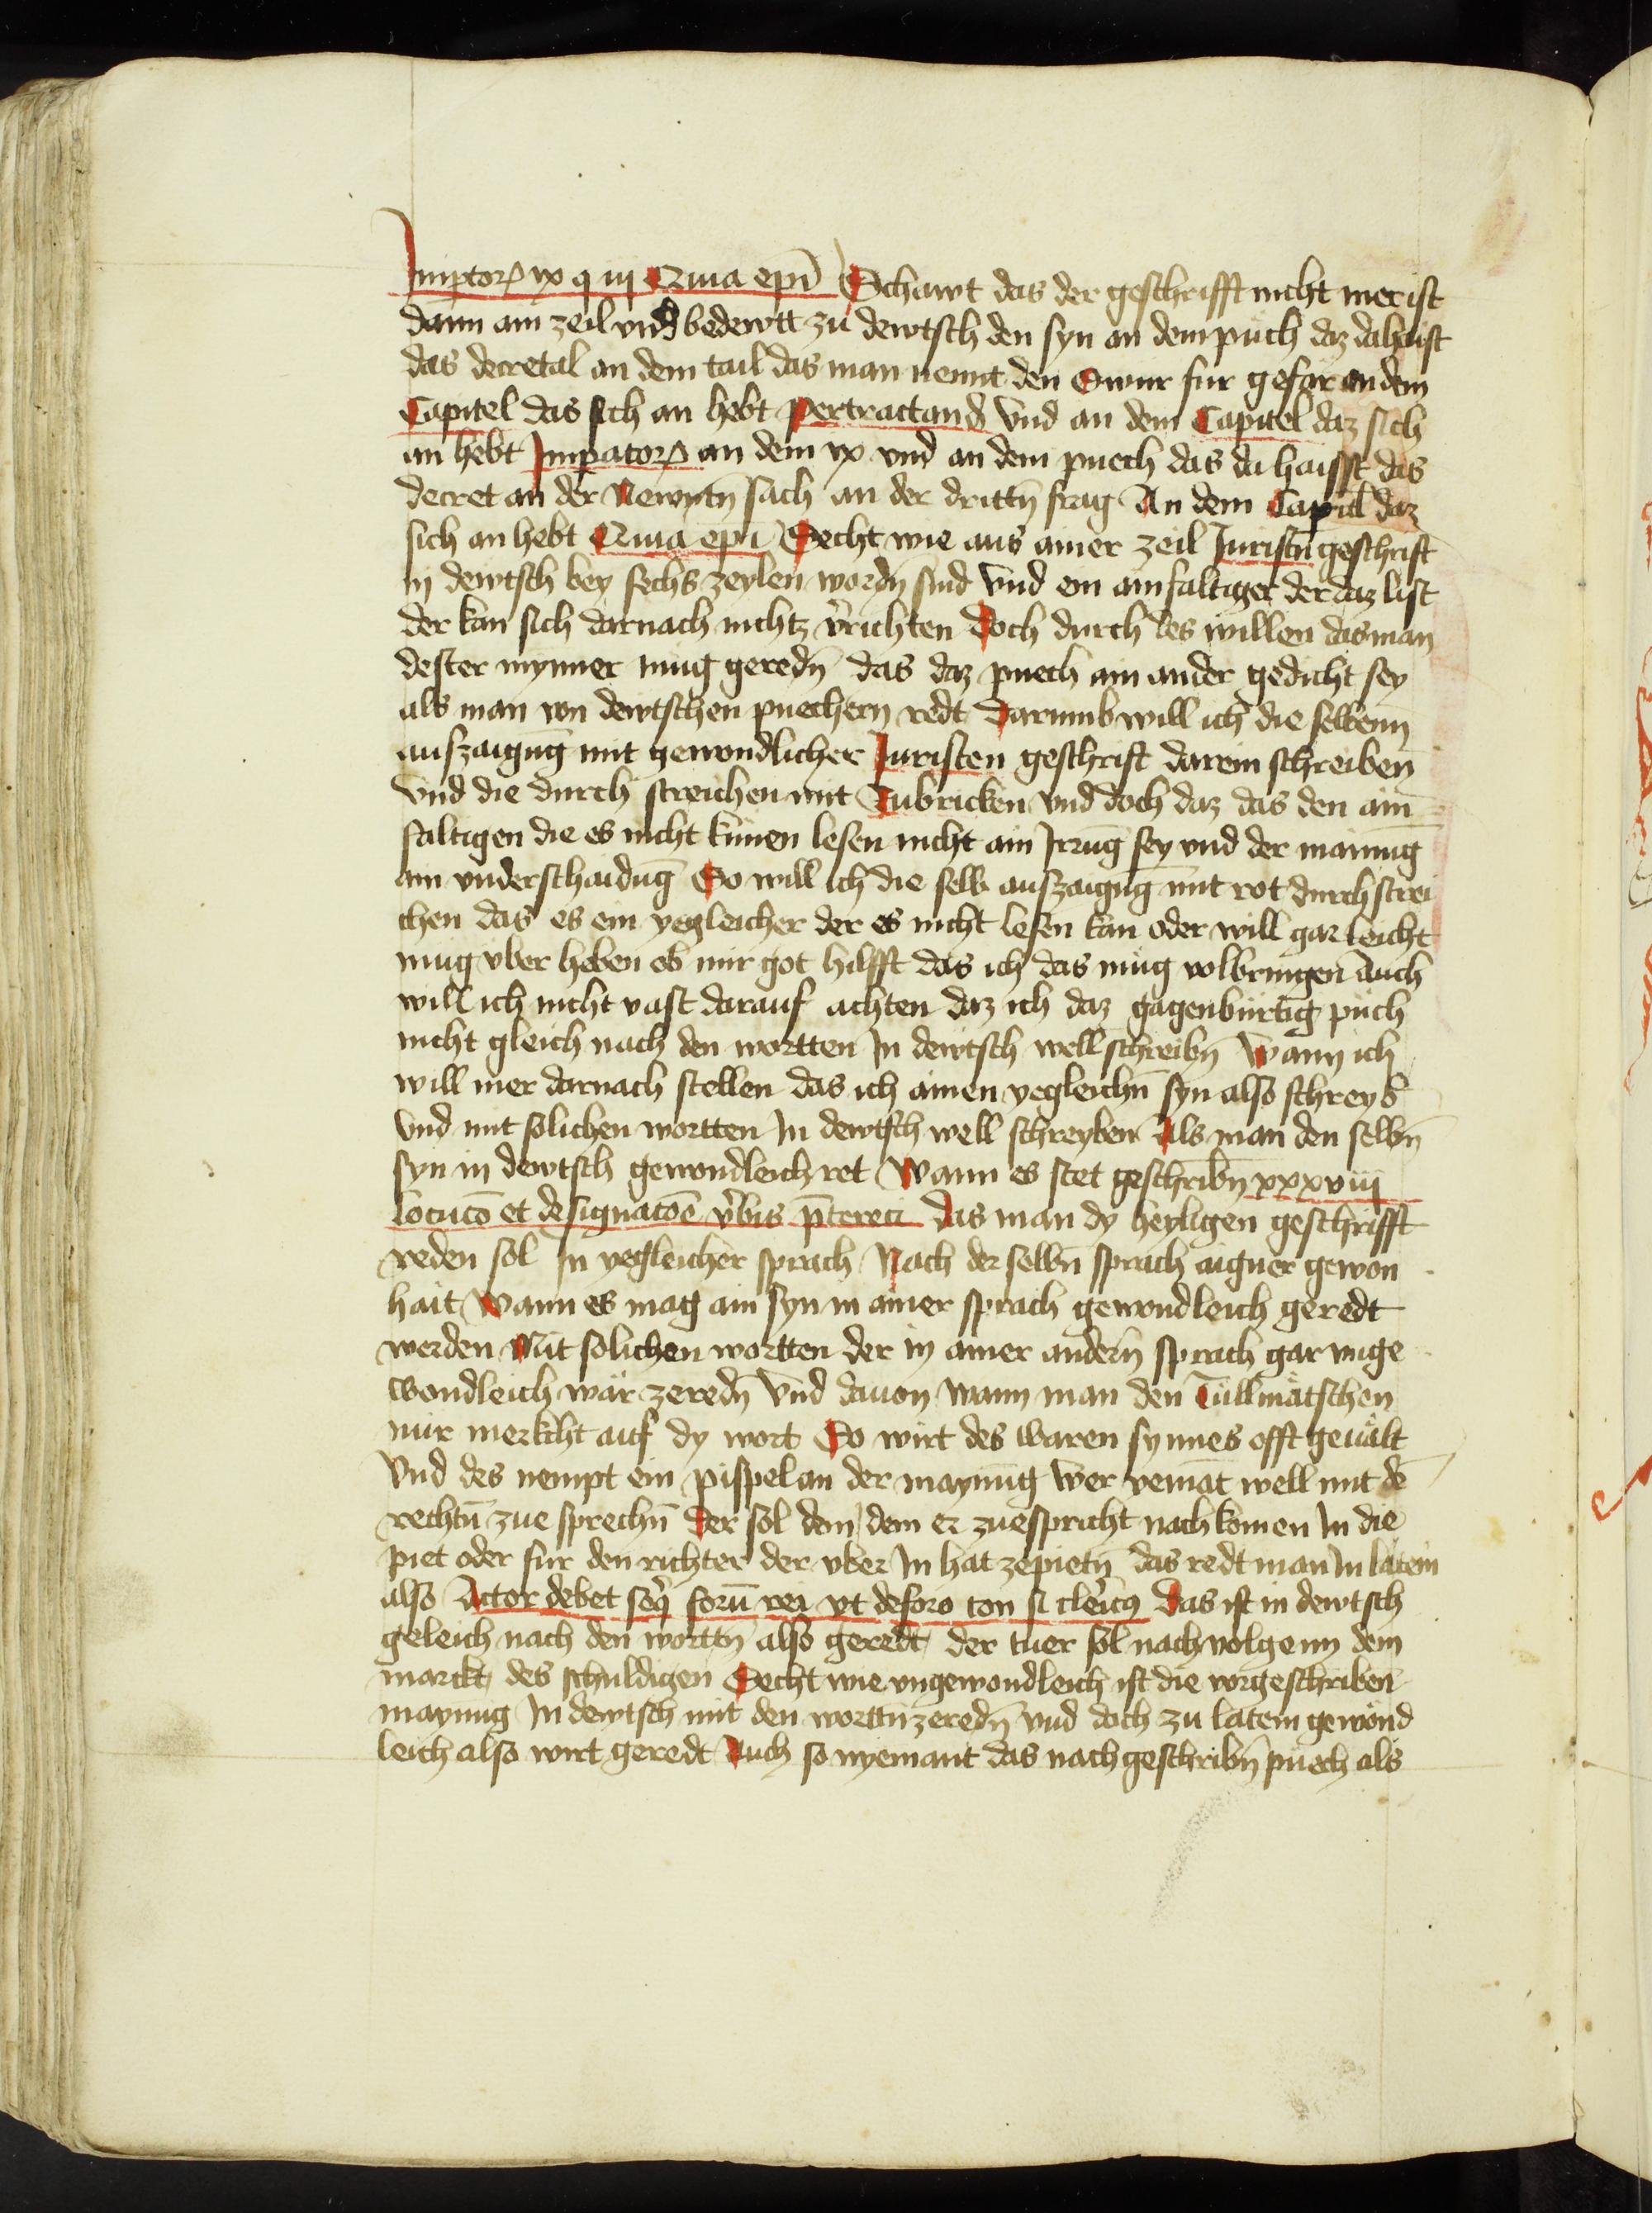 Imptor̄ ix q iij Quia ep̄i Schawt das der geschrifft nicht mer ist
dann ain zeil vnd bedewtt zu dewtsch den syn an dem puch daz da haist
das decretal an dem tail das man nennt den Swur fur gefar an dem
Capitel das sich an hebt Pertractand Vnd an dem Capitel daz sich
an hebt Impator̄ an dem ix vnd an dem puech das da haisst das
decret an der Newntn̄ sach an der drittn̄ frag An dem Capitl daz
sich an hebt Quia ep̄i Secht wie aus ainer zeil Juristn̄ geschrift
in dewtsch bey sechs zeylen wordn̄ sind Vnd ein ainfaltiger der daz list
der kan sich darnach nichtz v̄richten Doch durch des willen das man
dester mynner mug geredn̄ das daz puech ain ander gedicht sey
als man von dewtschen puechern redt Darumb will ich die selbenn̄
auszaigūg mit gewondlicher Juristen geschrift darein schreiben̄
Vnd die durch streichen mit Rubricken Vnd doch daz das den ain
faltigen die es nicht künen lesen nicht ain Irrūg sey vnd der mainūg
ain vnderschaidūg So will ich die selb auszaigūg mit rot durchstrei
chen das es ein yegleicher der es nicht lesen kan oder will gar leicht
mug vber heben ob mir got hilfft das ich das mug volbringen Auch
will ich nicht vast darauf achten daz ich daz gagenbürtig puch
nicht gleich nach den wortten In dewtsch well schreibn̄ Wann ich
will mer darnach stellen das ich ainen yegleichn̄ syn also schreyb
Vnd mit solichen wortten In dewtsch well schreyben Als man den selbn̄
syn in dewtsch gewondleich ret Wann es stet geschribn̄ xxxviij
locucō et designacōe v̄bis p̄tereci Das man dy heyligen geschrifft
reden sol In yegleicher sprach Nach der selbn̄ sprach aigner gewon
hait Wann es mag ain syn in ainer sprach gewondleich geredt
werden Mit solichen wortten der in ainer andern̄ sprach gar vnge
wondleich wär zeredn̄ Vnd dauon wann man den Tullmätschen
nur merkcht auf dy wort So wirt des waren synnes offt geuält
Vnd des nempt ein pispel an der maynūg wer yemāt well mit dē
rechtn̄ zue sprechn̄ Der sol dem dem er zuespricht nach komen In die
piet oder für den richter der vber In hat zepietn̄ das redt man In latein
also Actor debet seq̄ forū rei vt deforo con si cleicꝯ Das ist in dewtsch
geleich nach den worttn̄ also geredt der tuer sol nachvolgenn dem
marckt des schuldigen Secht wie vngewondleich ist die vorgeschriben
maynūg In dewtsch mit den worttn̄ zeredn̄ Vnd doch zu latein gewönd
leich also wirt geredt Auch so nyemant das nach geschribn̄ puech als